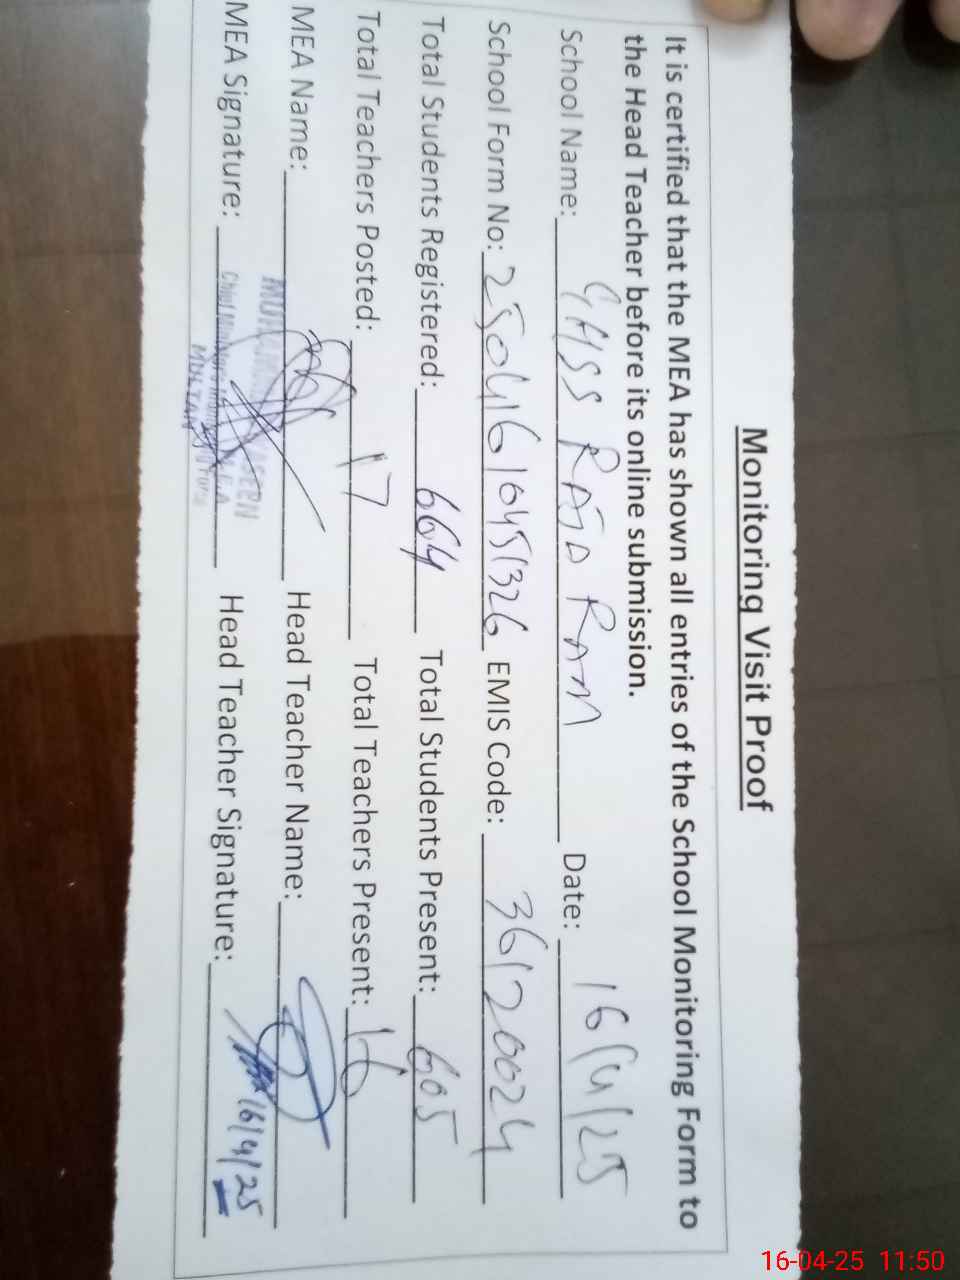 Monitoring Visit Proof
It is certified that the MEA has shown all entries of the School Monitoring Form to
the Head Teacher before its online submission.
School Name: GHSS RAJA RAM Date: 16/4/25
School Form No: 2504161616451326 EMIS Code: 36120024
Total Students Registered: 664 Total Students Present: 605
Total Teachers Posted: 17 Total Teachers Present: 16
MEA Name: Head Teacher Name:
MEA Signature: Head Teacher Signature: 16/4/25
MULTAN
16-04-25 11:50